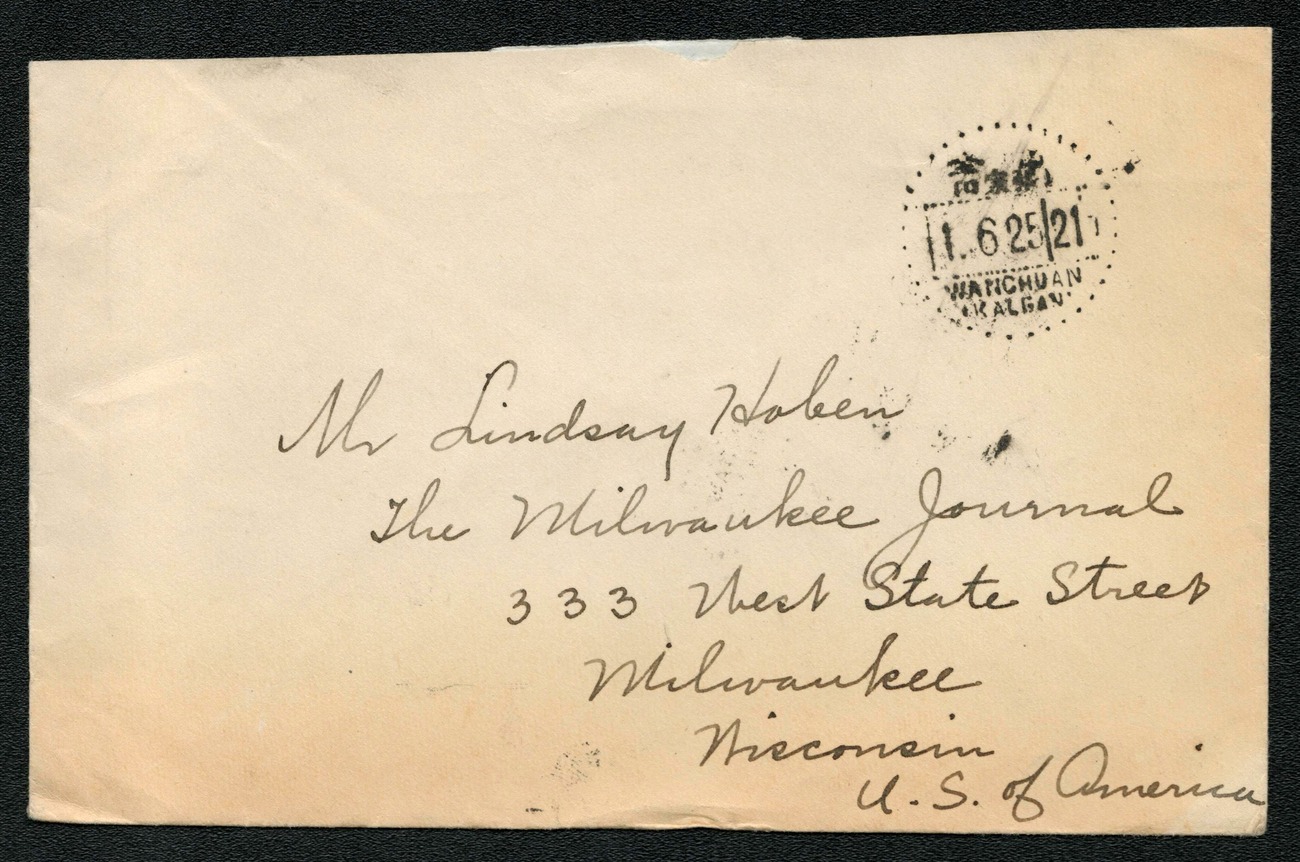 1.6 25 21
WANCHUAN
(KALGAN)
Mr Lindsay Hoben
The Milwaukee Journal
333 West State Street
Milwaukee
Wisconsin
U. S. of America